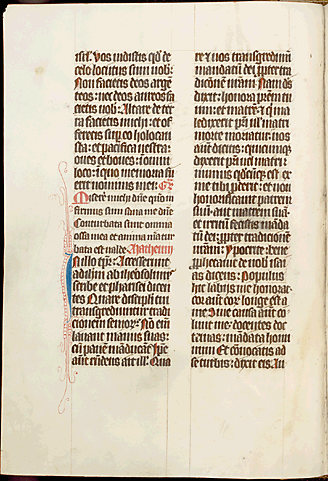 isrl. Vos uidistis qđ de
celo locutus sum uob:
Non facietis deos argē
teos: nec deos aureos fa
cietis uob. Altare de ter
ra facietis michi: et of
feretis sup eo holocau
sta: et pacifica uestra:
oues et boues: ī omni
loco: ī quo memoria fu
erit nominis mei. Gr
Miserere michi dn̄e qm̄ in
firmus sum sana me dn̄e
Conturbata sunt omnia
ossa mea et anima mea tur
bata est ualde. Matheum
In illo tp̄r: Accesserunt
ad ihm ab iherosolimis
scribe et pharisei dicen
tes Quare discipuli tui
transgrediuntur tradi
cionem senior. Nō eni
lauant manus suas:
cū panē māducāt Ipse
aūt rn̄dens ait ill. Qua
re et uos transgredimī
mandatū dei ppter tra
dicōnē urām. Nam ds
dixit: honora prēm tu
um: et matrē: et qui ma
ledixerit pri uel matri
morte moriatur: uos
aūt dicitis: quicumqz
dixerit pri uel matri
munus qdcūqz est ex
me tibi pderit: et non
honorificauit patrem
suū: aut matrem suā:
et irritū fecistis māda
tū dei: ppter tradicionē
urām. Ypocrite: bene
pphetauit de uobis ysai
as dicens: Populus
hic labijs me honorat:
cor aūt eor longe est a
me Sine causa aūt co
lunt me: docētes doc
trinas: mādata homi
num Et cōuocatis ad
se turbis: dixit eis. Au